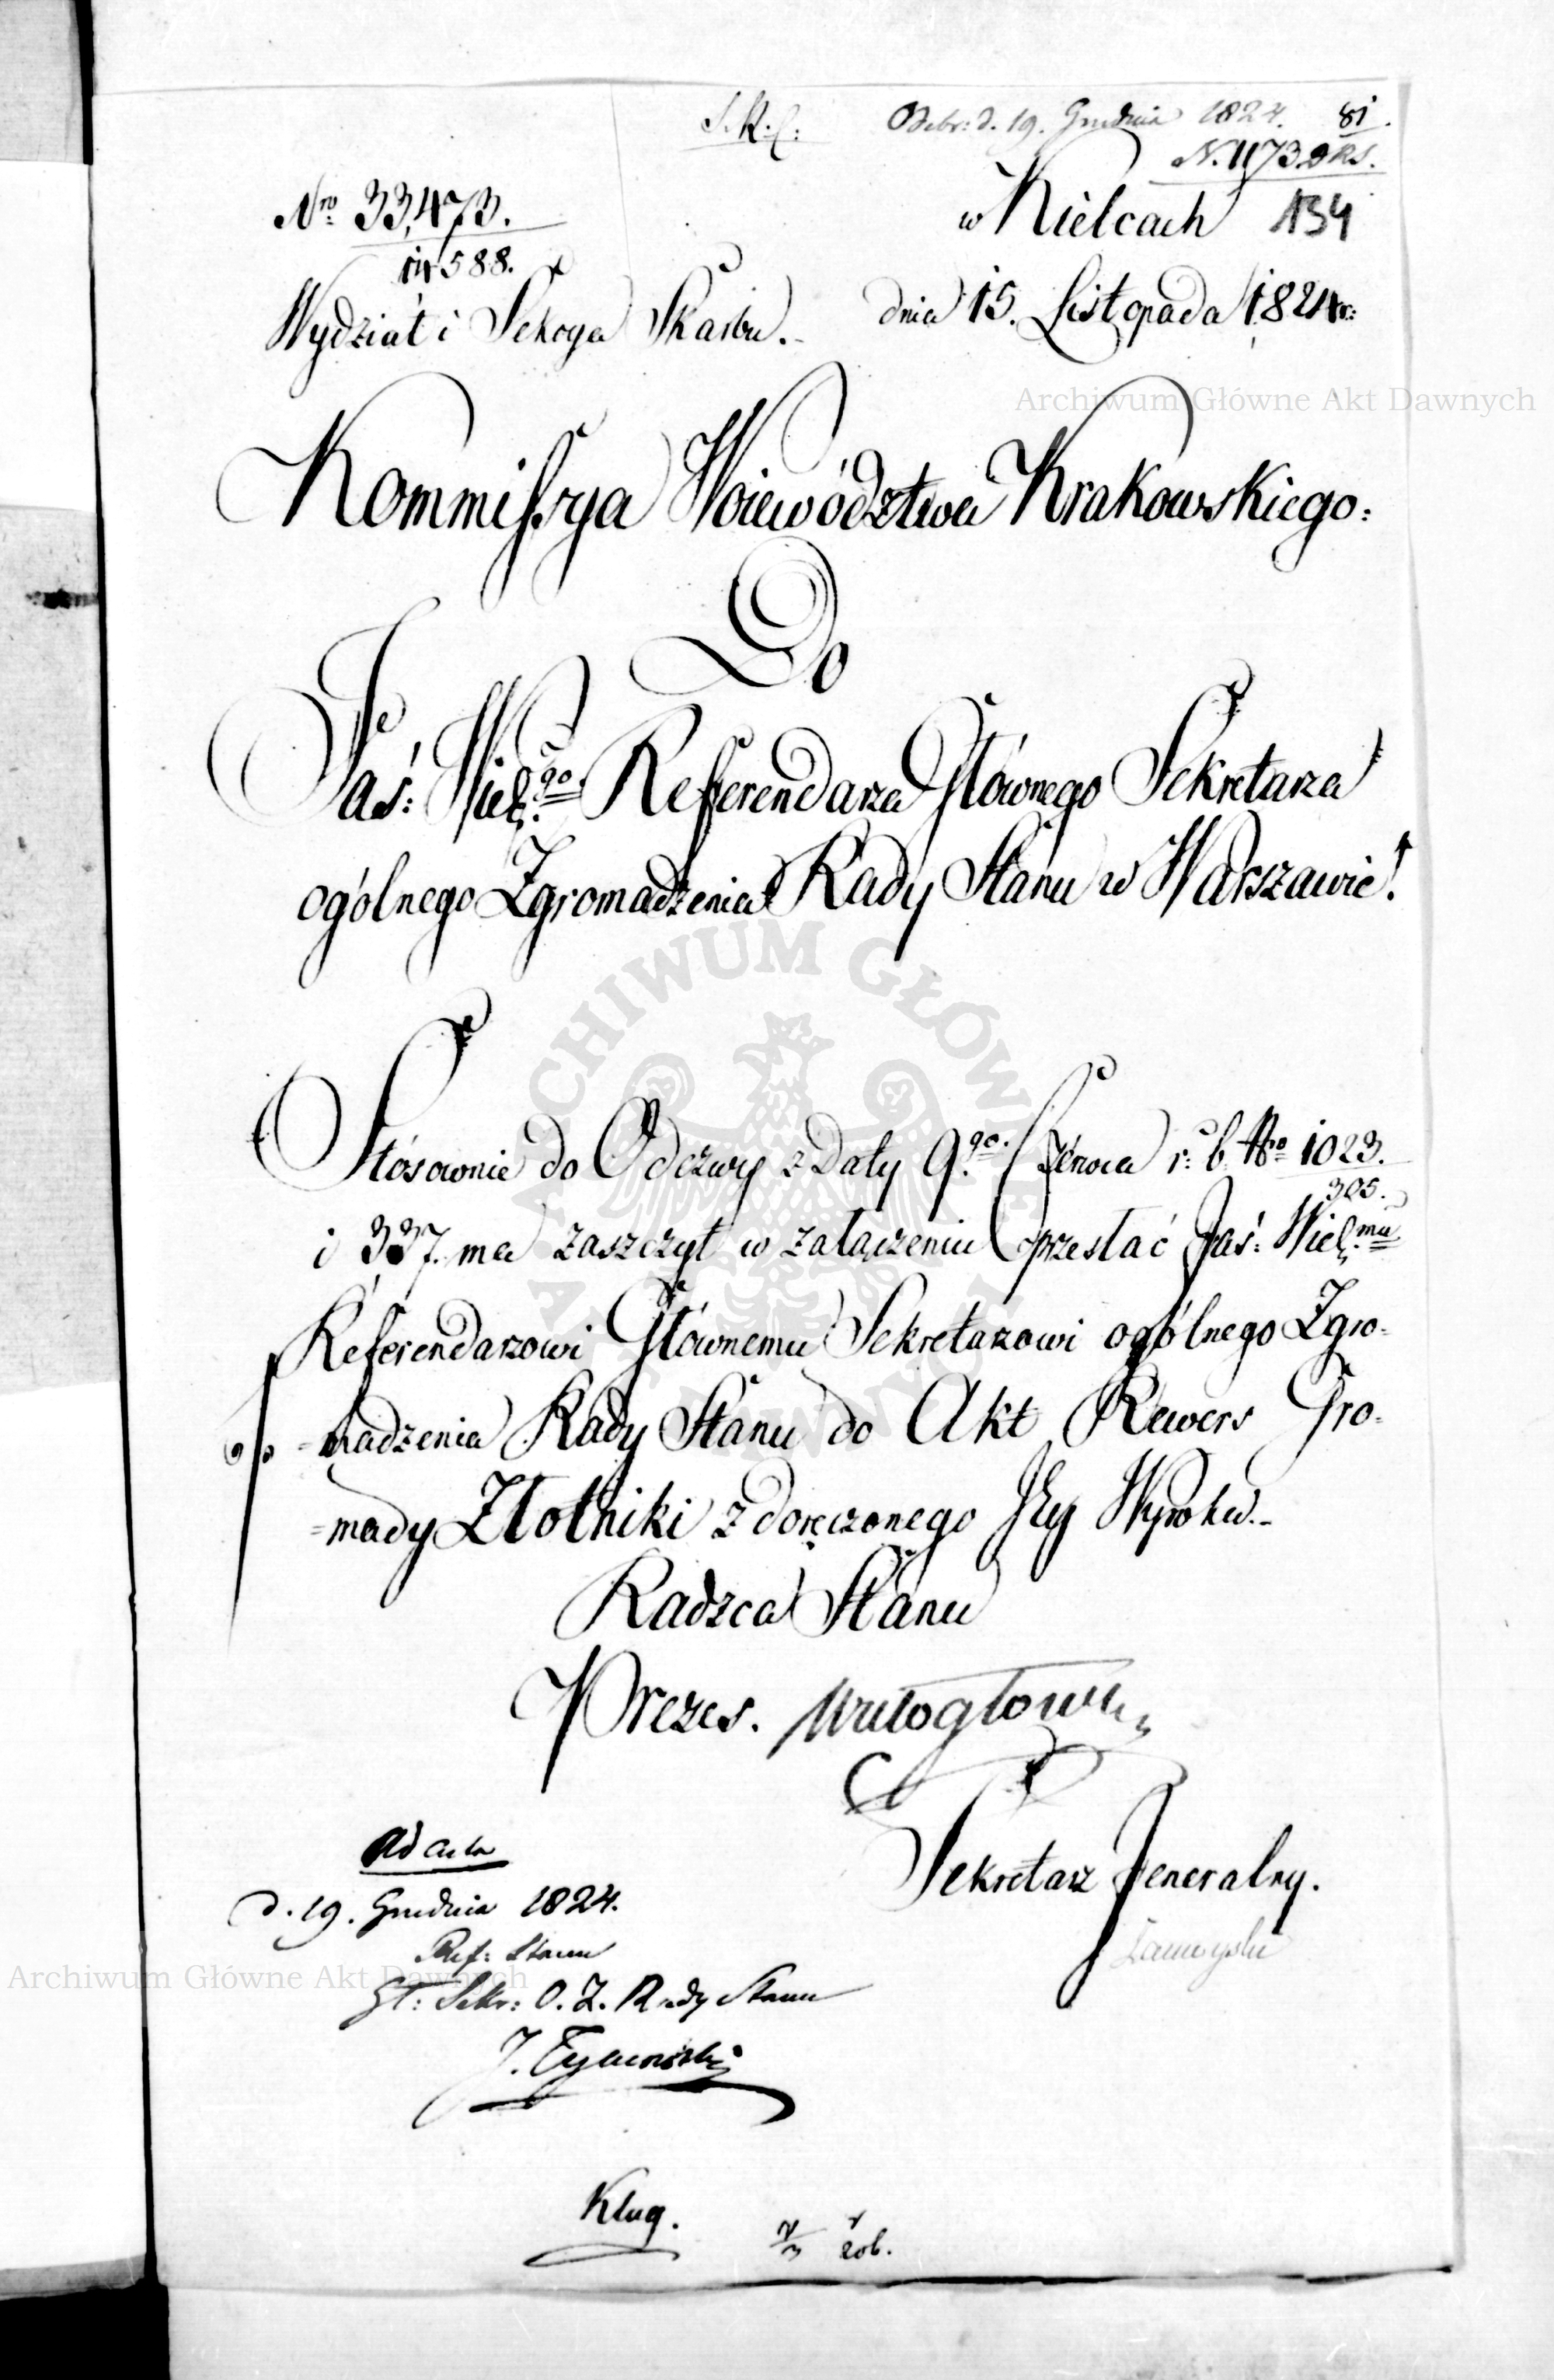 Odebr: d. 19. Grudnia 1824. 81.
N. 1173 
Nro 33,473.
14588.
w Kielcach 134
Wydział i Sekcya Skarbu.
dnia 15. Listopada 1824 r:
Archiwum Główne Akt Dawnych
Kommissya Woiewództwa Krakowskiego:
Do
Jaś: Wiel:go Referendarza Głównego Sekretarza
ogólnego Zgromadzenia Rady Stanu w Warszawie!
Stósownie do Odezwy z Daty 9.go Czerwca r: b. Nro 1023.
305.
i 337. ma zaszczyt w załączeniu przesłać Jaś: Wiel:mu
Referendarzowi Głównemu Sekretarzowi ogólnego Zgro-
-madzenia Rady Stanu do Akt Rewers Gro-
-mady Złotniki z doręczonego Jey Wyroku.-
Radzca Stanu
Prezes. Wielogłowski
Sekretarz Jeneralny.
Ad acta
d. 19. Grudnia 1824.
Ref: Stanu
Gł: Sekr: O. Z. Rady Stanu
Archiwum Główne Akt Dawnych
J. Tymowski
Klug.